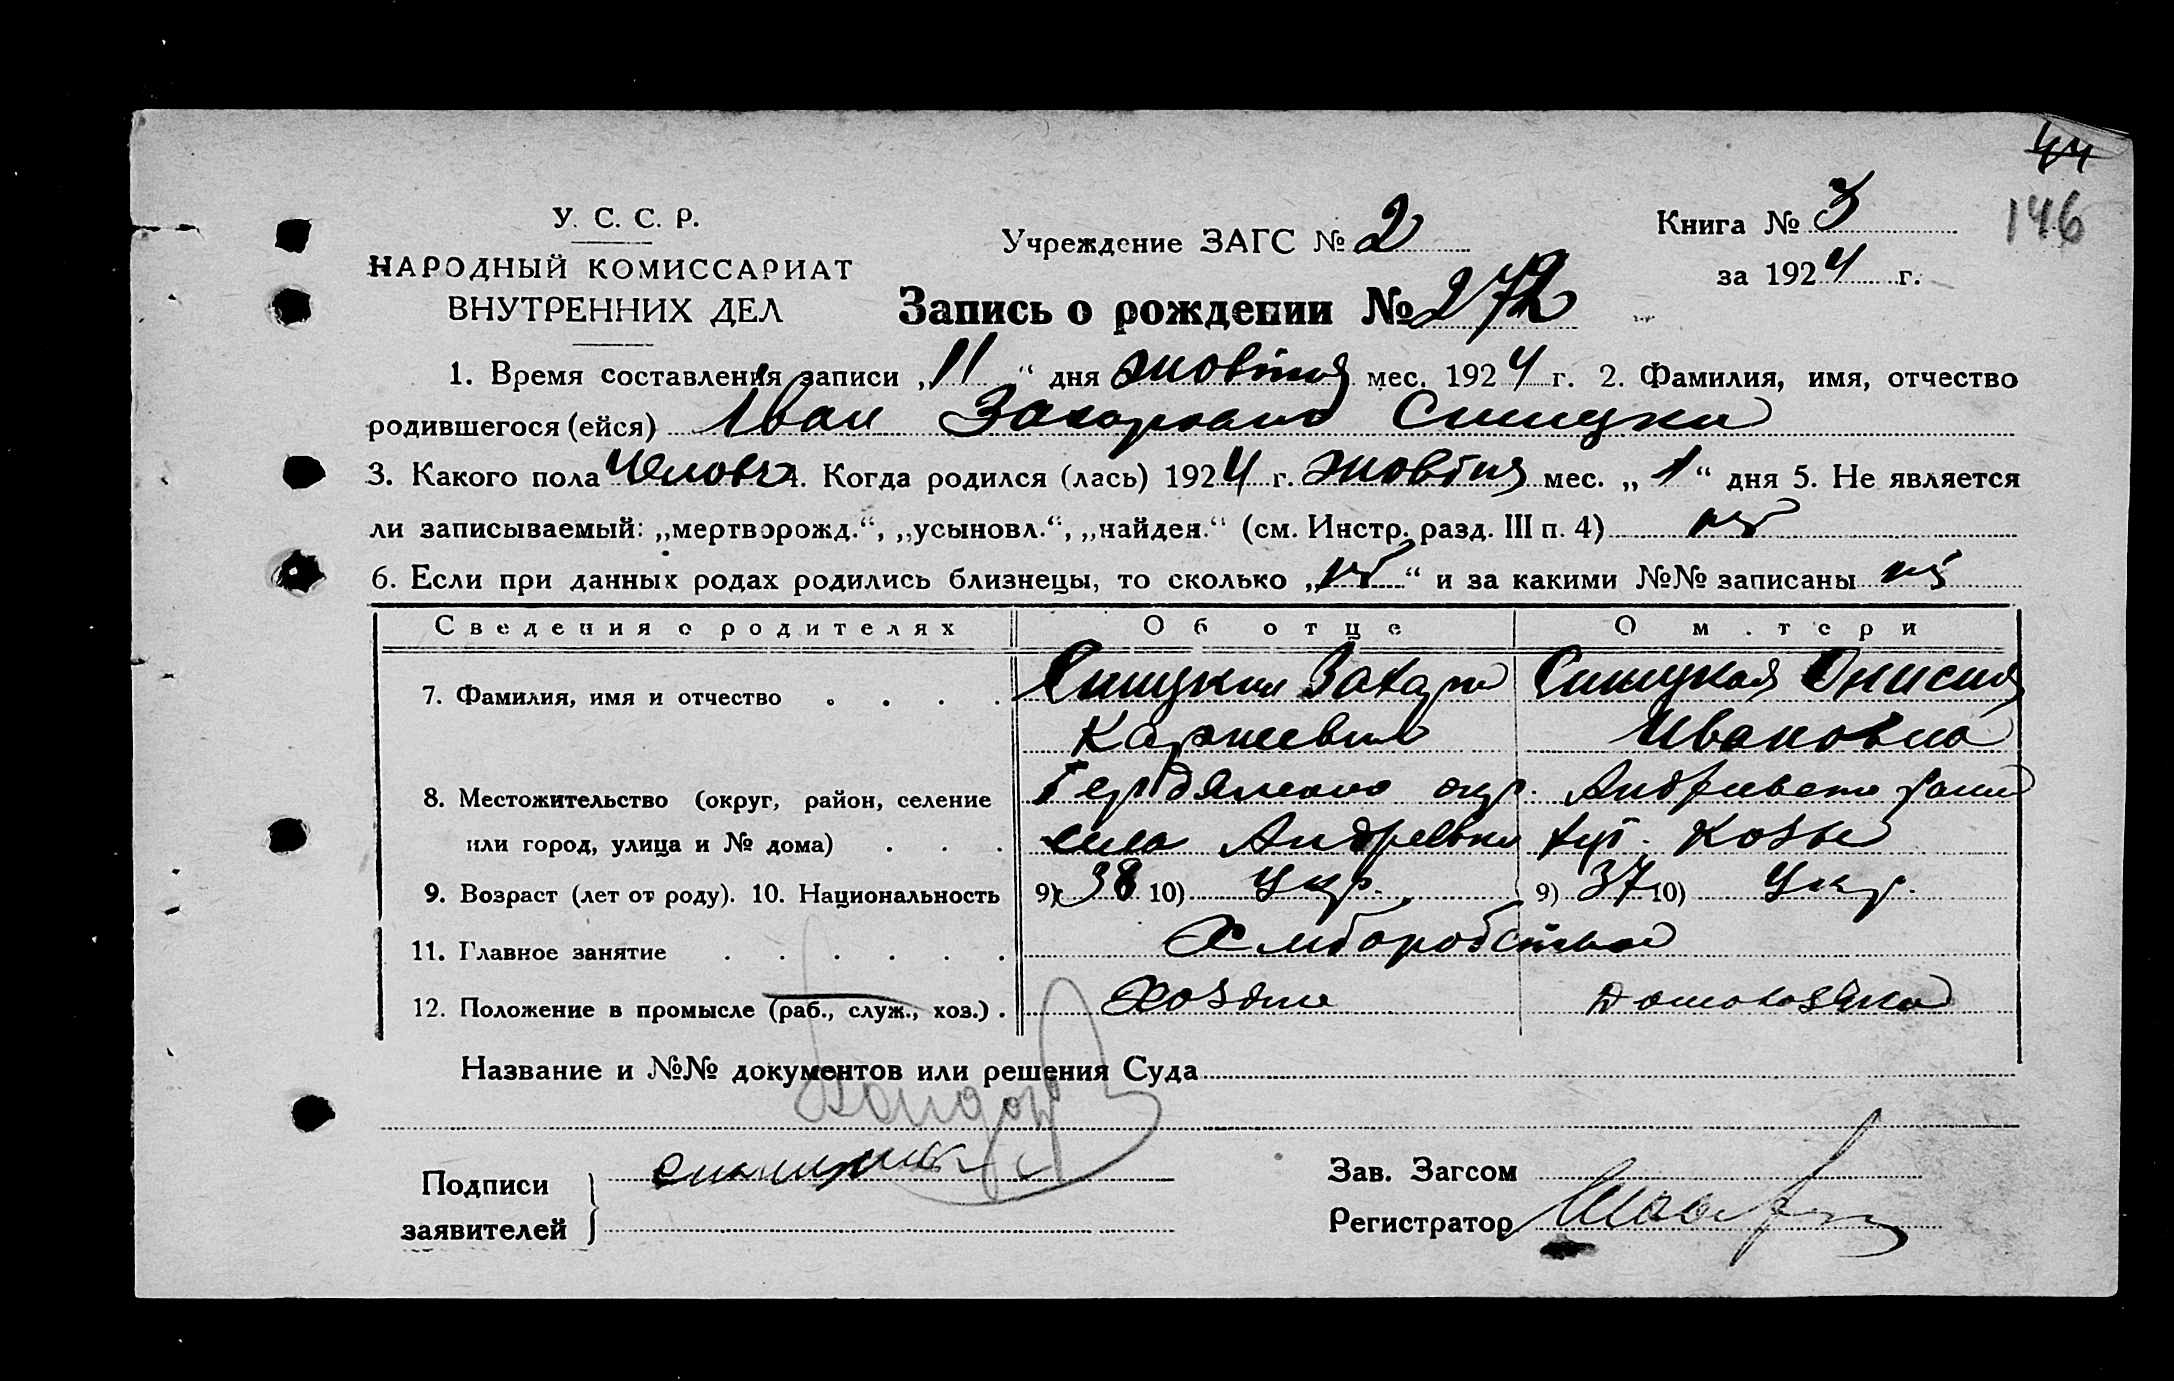 44
146
У. С. С. Р.
НАРОДНЫЙ КОМИССАРИАТ
ВНУТРЕННИХ ДЕЛ
Учреждение ЗАГС № 2
Книга № 3
за 1924 г.
Запись о рождении № 272
1. Время составления записи „11“ дня жовтня мес. 1924 г. 2. Фамилия, имя, отчество
родившегося (ейся) Іван Захарович Синицкий
3. Какого пола Человч 4. Когда родился (лась) 1924 г. жовтня мес. „1“ дня 5. Не является
ли записываемый: „мертворожд.“, „усыновл.“, „найден.“ (см. Инстр. разд. III п. 4) ні
6. Если при данных родах родились близнецы, то сколько „ні“ и за какими №№ записаны ні
Сведения о родителях Об отце О матери
7. Фамилия, имя и отчество Синицкий Захар Синицкая Онисия
Ивановна
8. Местожительство (округ, район, селение окр.
или город, улица и № дома) село хут.
9. Возраст (лет от роду). 10. Национальность 9) 38 10) Укр. 9) 37 10) Укр.
11. Главное занятие Хліборобство
12. Положение в промысле (раб., служ., хоз.) Хозяин Домохозяйка
Название и №№ документов или решения Суда
Подписи
заявителей
Зав. Загсом
Регистратор